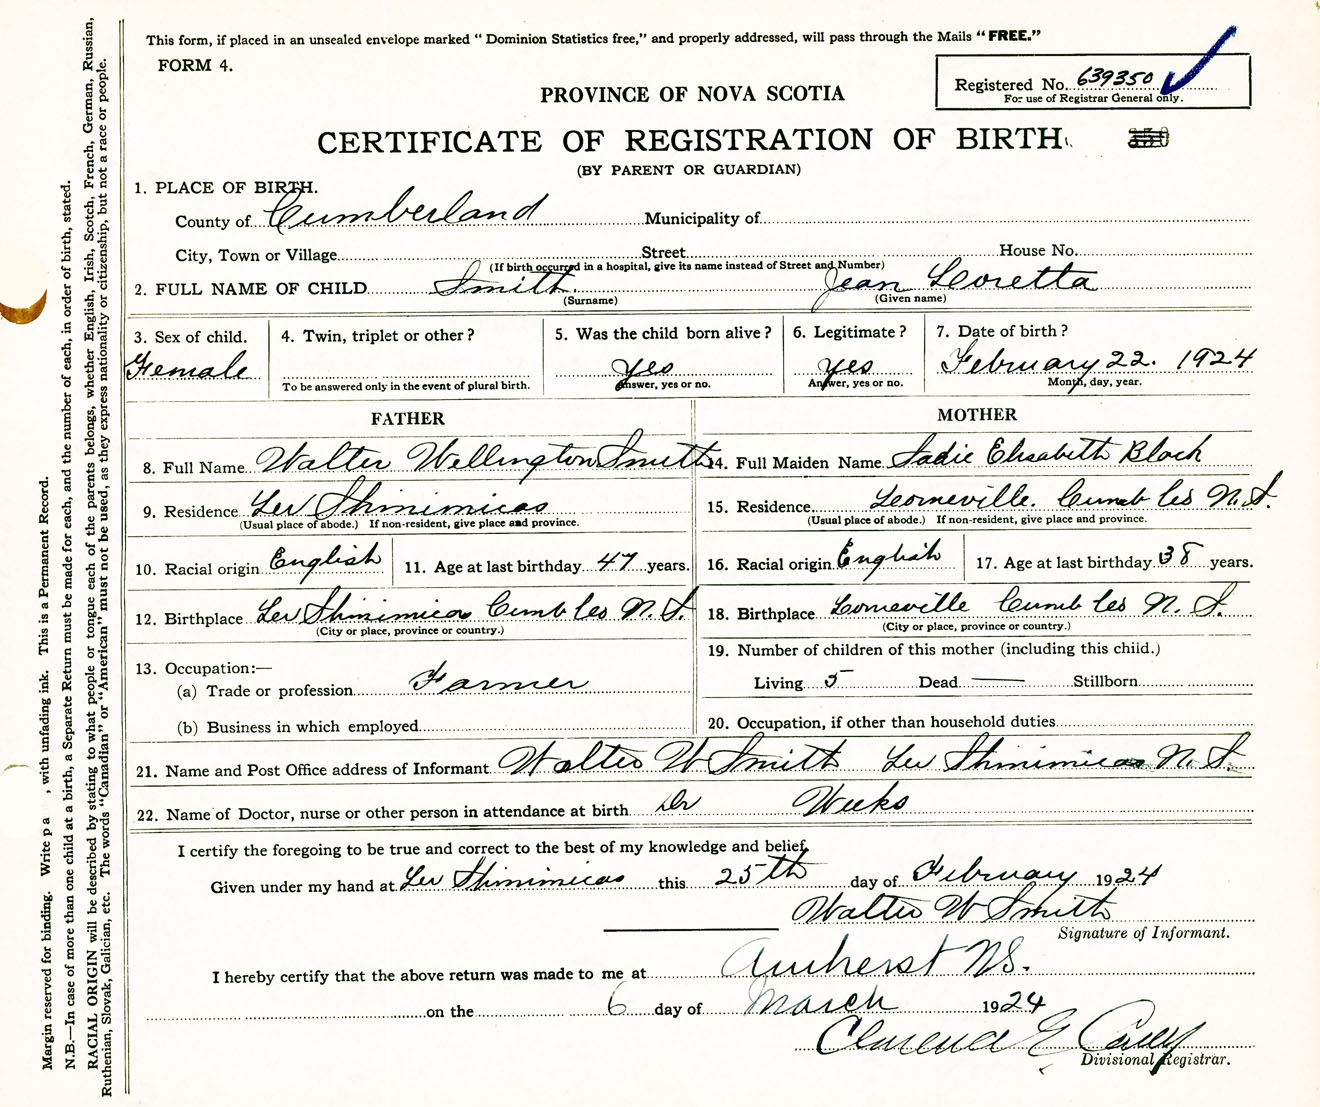 This form, if placed in an unsealed envelope marked "Dominion Statistics free," and properly addressed, will pass through the Mails "FREE."
FORM 4.
Registered No. 639350
For use of Registrar General only.
PROVINCE OF NOVA SCOTIA
CERTIFICATE OF REGISTRATION OF BIRTH
350
(BY PARENT OR GUARDIAN)
1. PLACE OF BIRTH.
County of Cumberland Municipality of
City, Town or Village Street House No.
(If birth occurred in a hospital, give its name instead of Street and Number)
2. FULL NAME OF CHILD Smith Jean Loretta
(Surname) (Given name)
3. Sex of child. 4. Twin, triplet or other? 5. Was the child born alive? 6. Legitimate? 7. Date of birth?
Female Yes Yes February 22. 1924
To be answered only in the event of plural birth. Answer, yes or no. Answer, yes or no. Month, day, year.
FATHER MOTHER
8. Full Name Walter Wellington Smith 14. Full Maiden Name Sadie Elisabeth Black
9. Residence Lr Shinimicas 15. Residence Lorneville. Cumb Co N.S.
(Usual place of abode.) If non-resident, give place and province. (Usual place of abode.) If non-resident, give place and province.
10. Racial origin English 11. Age at last birthday 47 years. 16. Racial origin English 17. Age at last birthday 38 years.
12. Birthplace Lr Shinimicas Cumb Co N.S. 18. Birthplace Lorneville Cumb Co N.S.
(City or place, province or country.) (City or place, province or country.)
13. Occupation:— 19. Number of children of this mother (including this child.)
(a) Trade or profession Farmer Living 5 Dead — Stillborn
(b) Business in which employed 20. Occupation, if other than household duties
21. Name and Post Office address of Informant Walter W Smith Lr Shinimicas N.S.
22. Name of Doctor, nurse or other person in attendance at birth Dr Weeks
I certify the foregoing to be true and correct to the best of my knowledge and belief.
Given under my hand at Lr Shinimicas this 25th day of February 1924
Walter W Smith
Signature of Informant.
I hereby certify that the above return was made to me at Amherst NS.
on the 6 day of March 1924
E
Divisional Registrar.
Margin reserved for binding. Write p a , with unfading ink. This is a Permanent Record.
N.B.—In case of more than one child at a birth, a Separate Return must be made for each, and the number of each, in order of birth, stated.
RACIAL ORIGIN will be described by stating to what people or tongue each of the parents belongs, whether English, Irish, Scotch, French, German, Russian,
Ruthenian, Slovak, Galician, etc. The words "Canadian" or "American" must not be used, as they express nationality or citizenship, but not a race or people.